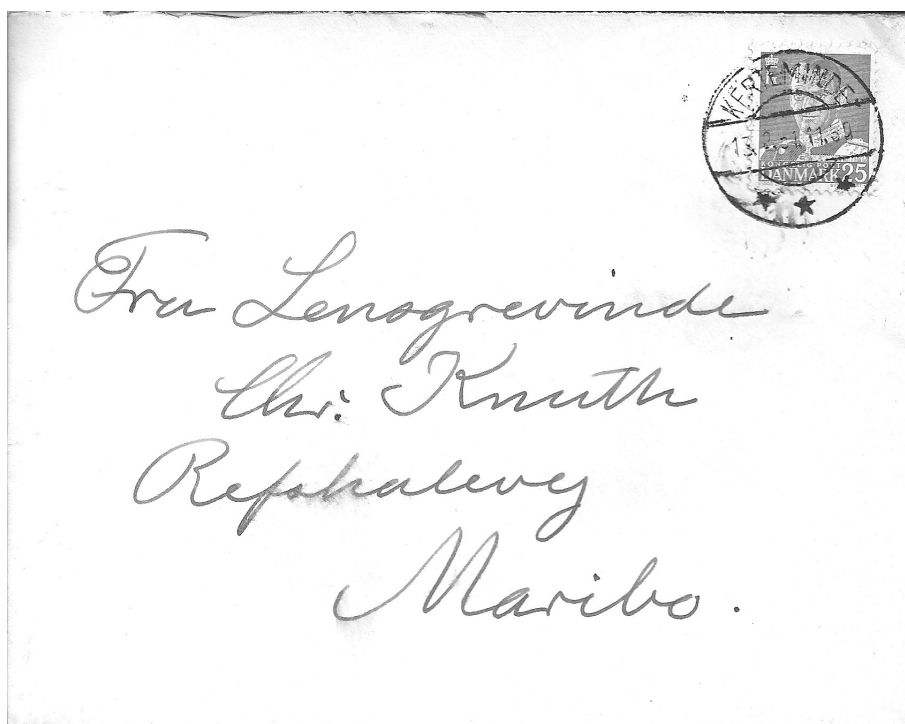 KERTEMINDE
13.2.51.11.50
KONGELIG POST
DANMARK 25
Fru Lensgrevinde
Chr. Knuth
Refshalevej
Maribo.